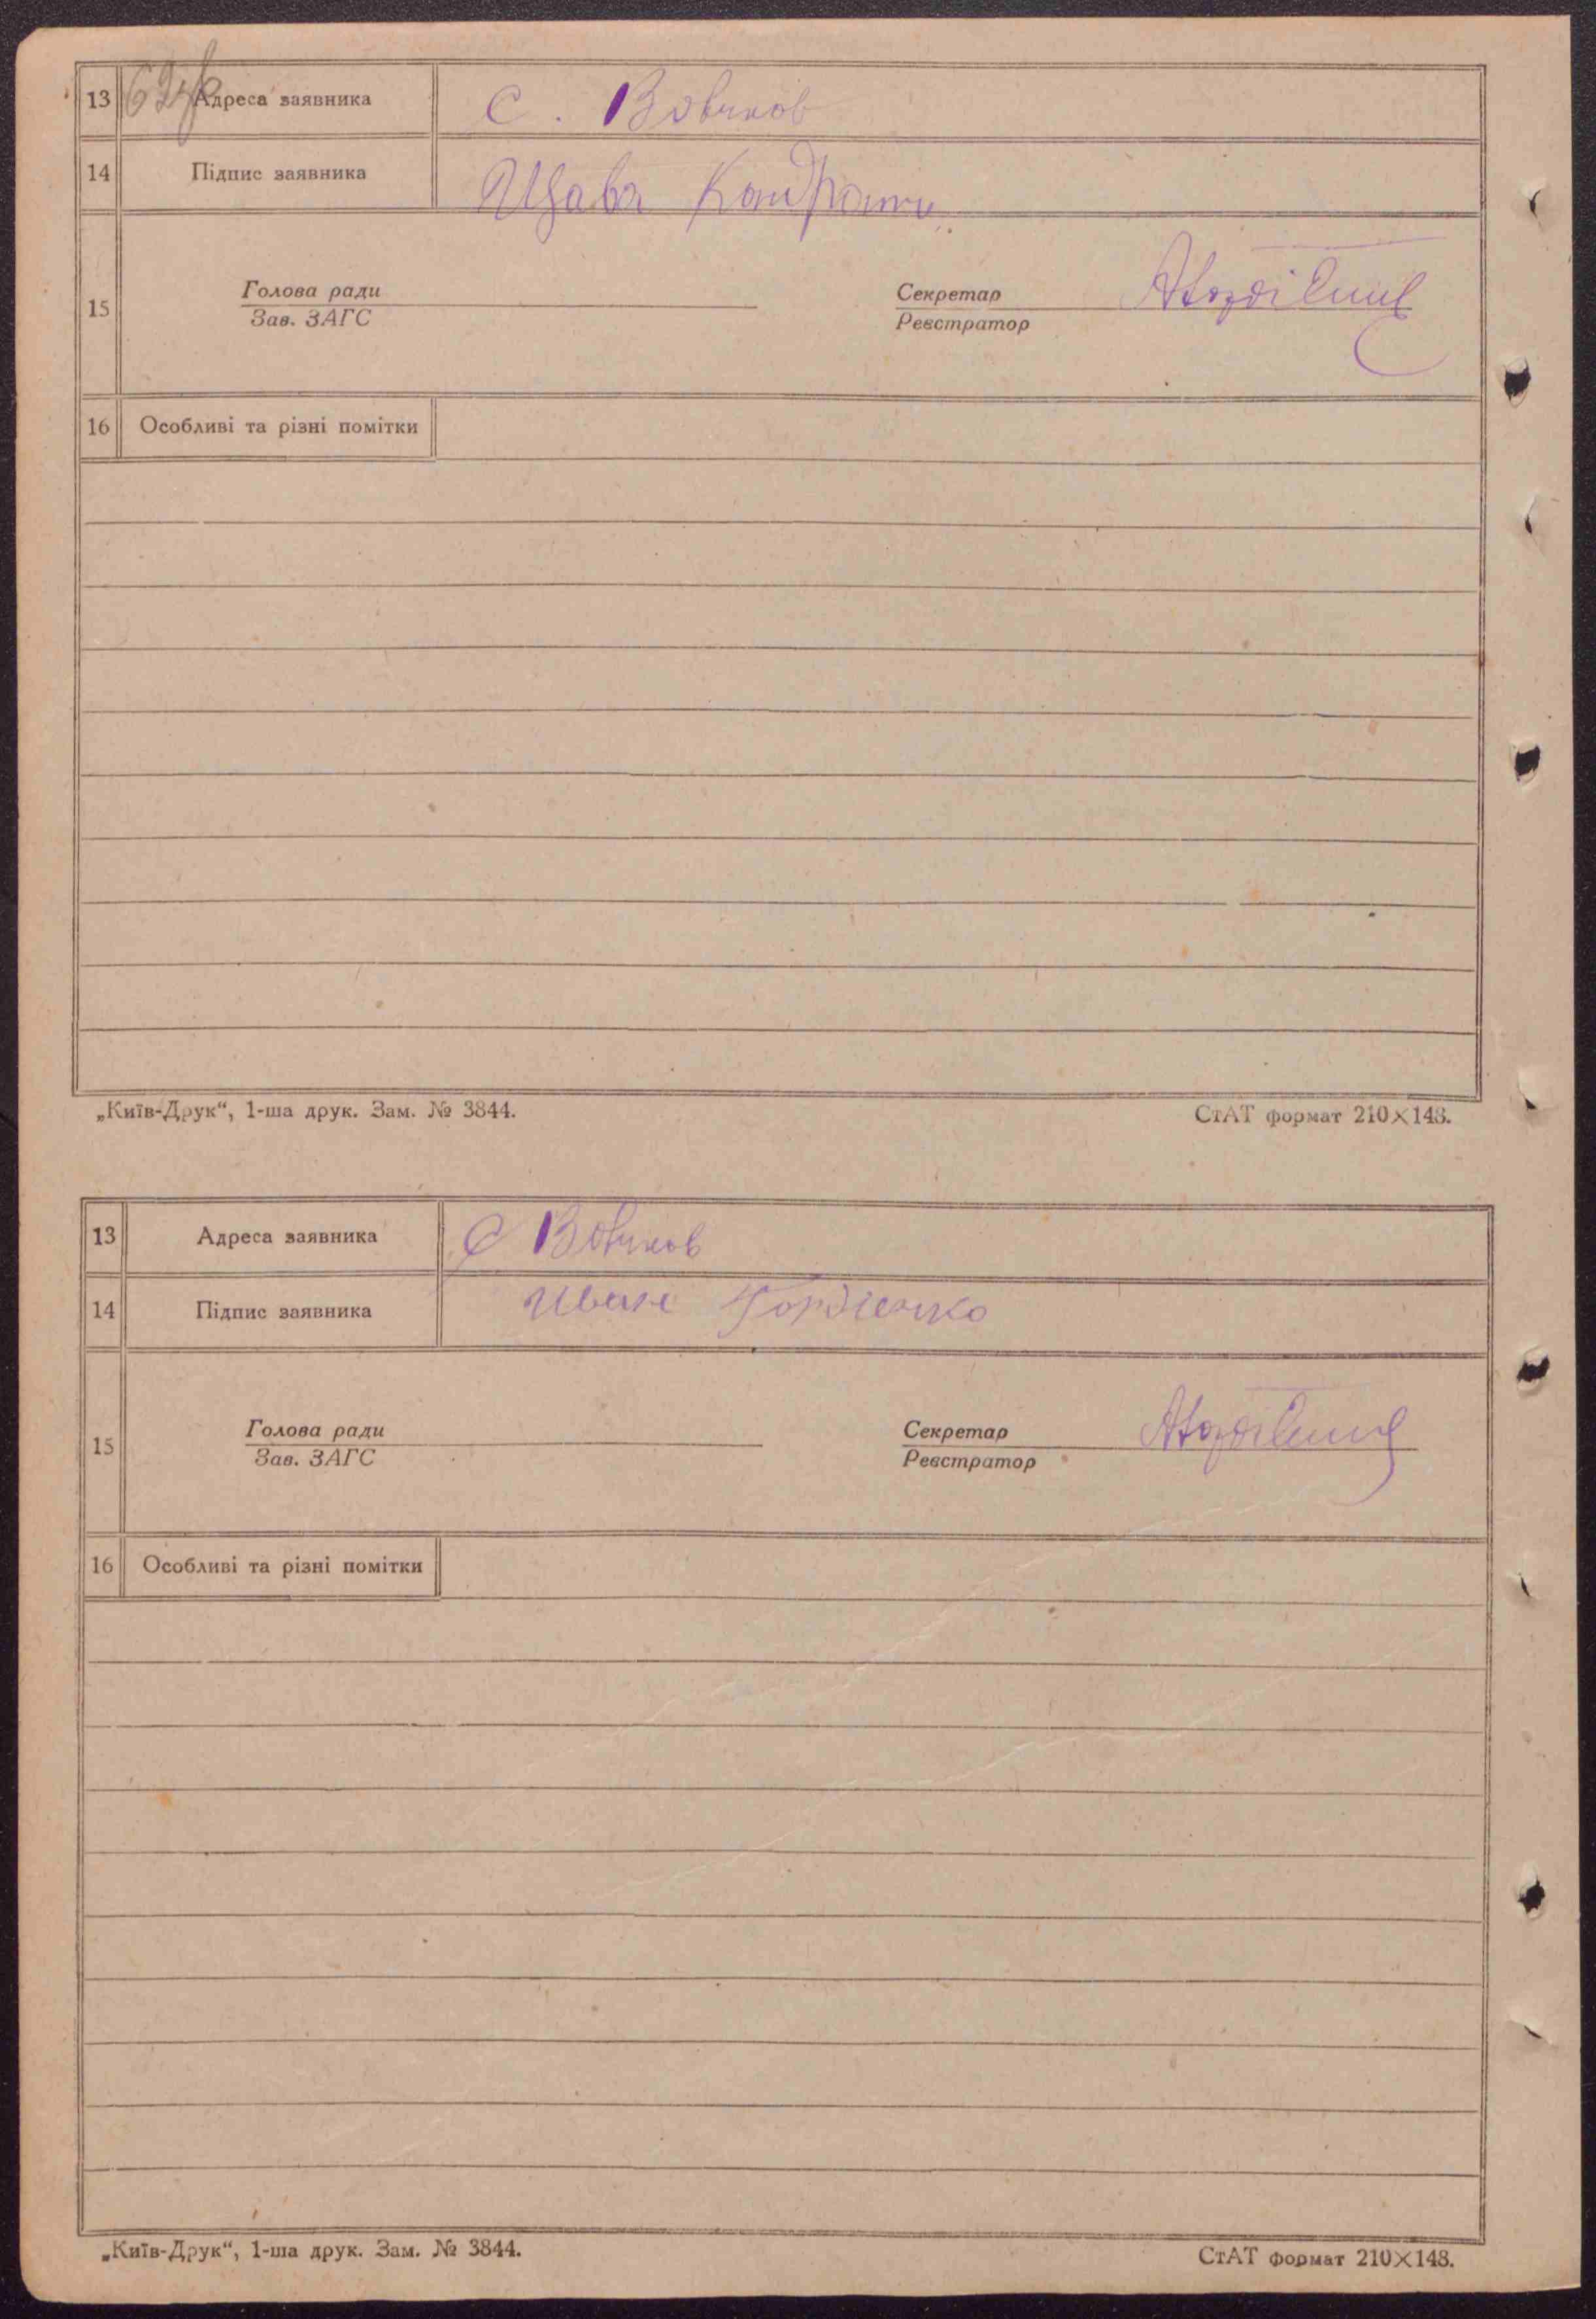 13 Адреса заявника С. Вовчков
14 Підпис заявника Щава Кондрати
15 Голова ради Секретар
Зав. ЗАГС Реєстратор
16 Особливі та різні помітки
„Київ-Друк“, 1-ша друк. Зам. № 3844. СтАТ формат 210×148.
13 Адреса заявника С Вовчков
14 Підпис заявника Иван Гордіенко
15 Голова ради Секретар
Зав. ЗАГС Реєстратор
16 Особливі та різні помітки
„Київ-Друк“, 1-ша друк. Зам. № 3844. СтАТ формат 210×148.